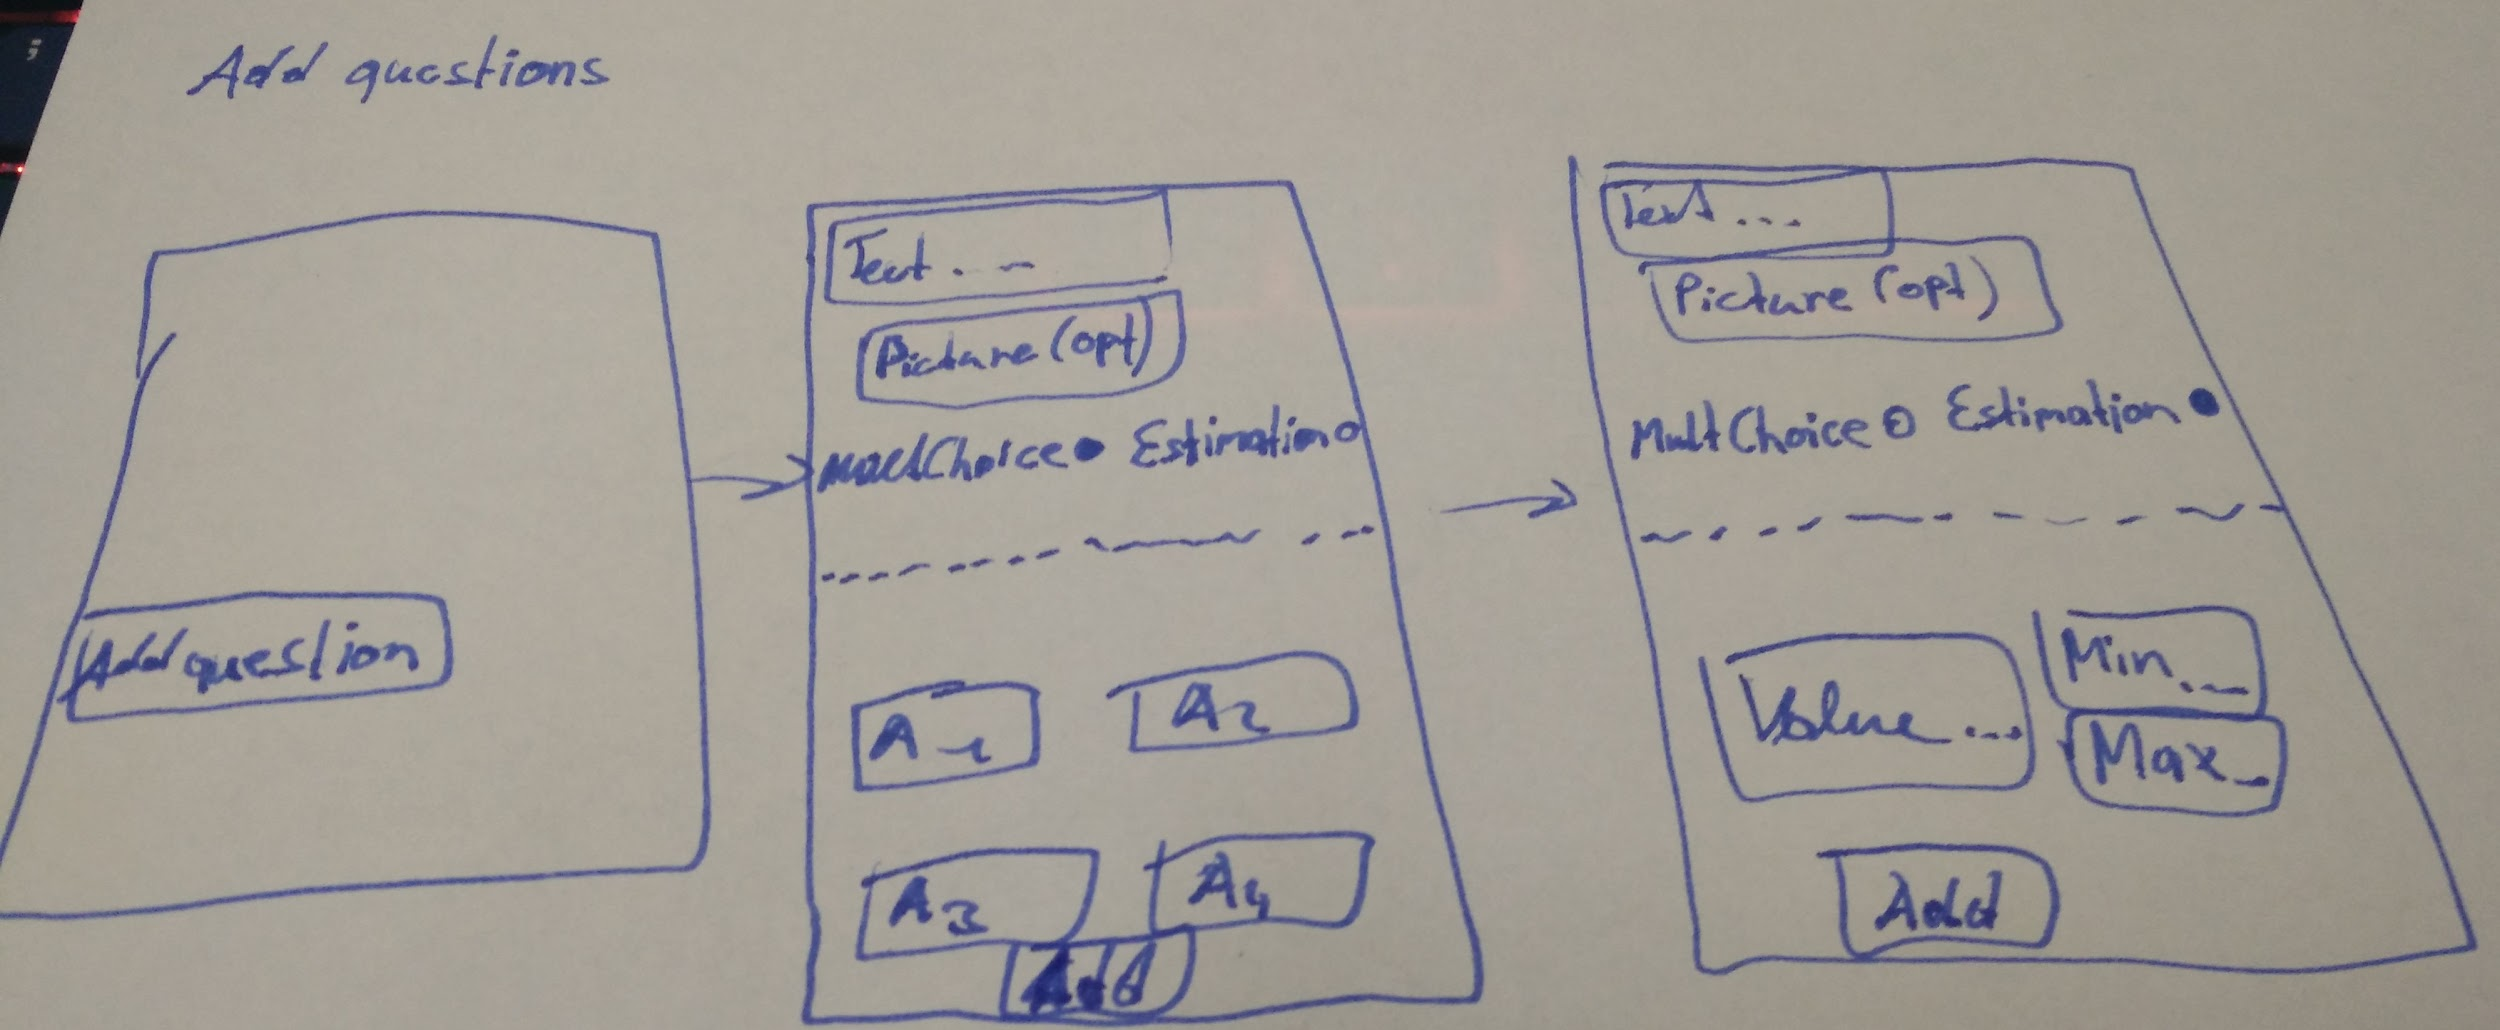 Add questions
Add question
Text...
Picture (opt)
MultChoice Estimation
A1
A2
A3
A4
Add
Text...
Picture (opt)
MultChoice Estimation
Value...
Min...
Max...
Add